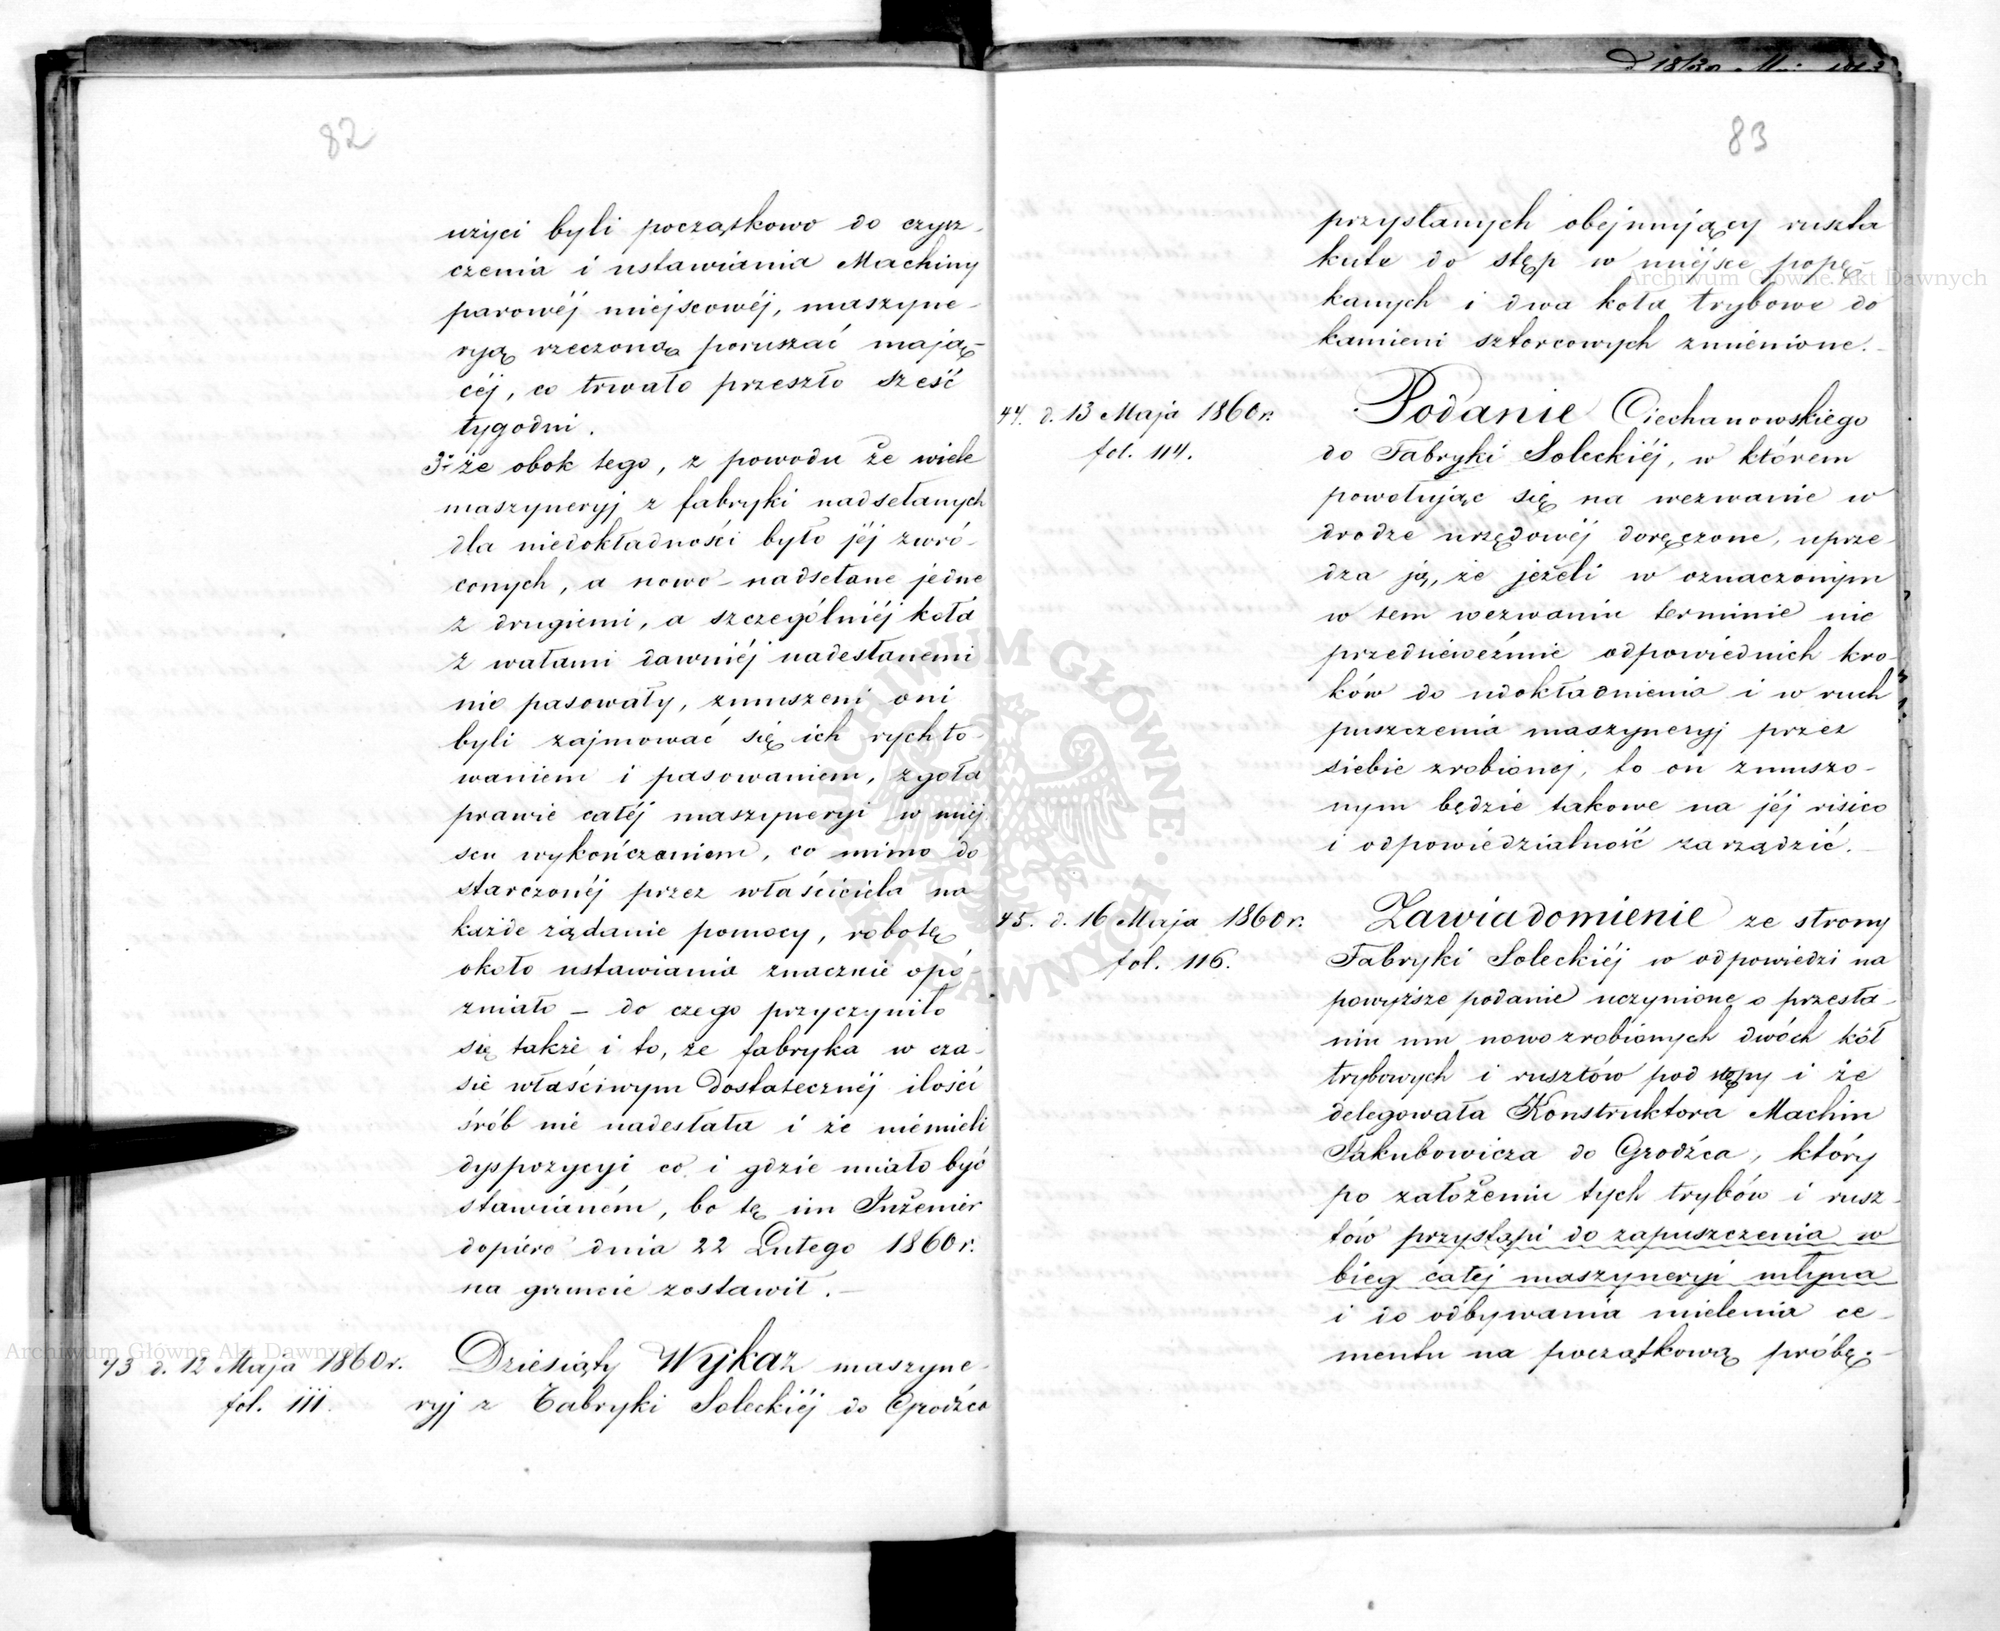 82
użyci byli początkowo do czysz-
czenia i ustawiania Machiny
parowéj miejscowéj, maszyne-
ryą rzeczoną poruszać mają-
céj, co trwało przeszło sześć
tygodni.
3. że obok tego, z powodu że wiele
maszyneryj z fabryki nadsełanych
dla niedokładności było jéj zwró-
conych, a nowo-nadsełane jedne
z drugiemi, a szczególniéj koła
z wałami dawniéj nadesłanemi
nie pasowały, zmuszeni oni
byli zajmować się ich rychto-
waniem i pasowaniem, zgoła
prawie całéj maszyneryi w miej
scu wykończeniem, co mimo do
starczonéj przez właściciela na
każde żądanie pomocy, robotę
około ustawiania znacznie opó-
zniało – do czego przyczyniło
się także i to, że fabryka w cza-
sie właściwym dostatecznéj ilości
śrób nie nadesłała i że niémieli
dyspozycyi co i gdzie miało być
stawianém, bo tę im Inżenier
dopiero dnia 22 Lutego 1860 r.
na gruncie zostawił.–
43 d. 12 Maja 1860 r.
fol. 111.
Dziesiąty Wykaz maszyne-
ryj z Fabryki Soleckiéj do Grodźca
83
przysłanych obejmujący ruszta
kute do stęp w miejsce popę-
kanych i dwa koła trybowe do
kamieni sztorcowych zmienione.–
44. d. 13 Maja 1860 r.
fol. 114.
Podanie Ciechanowskiego
do Fabryki Soleckiéj, w którem
powołując się na wezwanie w
drodze urzędowéj doręczone, uprze-
dza ją, że jeżeli w oznaczonym
w tem wezwaniu terminie nie
przedsieweźmie odpowiednich kro-
ków do udokładnienia i w ruch
puszczenia maszyneryj przez
siebie zrobionej, to on zmuszo-
nym będzie takowe na jéj risico
i odpowiedzialność zarządzić.–
45. d. 16 Maja 1860 r.
fol. 116.
Zawiadomienie ze strony
Fabryki Soleckiéj w odpowiedzi na
powyższe podanie uczynione o przesła-
niu mu nowozrobionych dwóch kół
trybowych i rusztów pod stępy i że
delegowała Konstruktora Machin
Jakubowicza do Grodźca, który
po założeniu tych trybów i rusz-
tów przystąpi do zapuszczenia w
bieg całej maszyneryi młyna
i do odbywania mielenia ce-
mentu na początkową próbę.–
Archiwum Główne Akt Dawnych
Archiwum Główne Akt Dawnych
ARCHIWUM GŁÓWNE AKT DAWNYCH